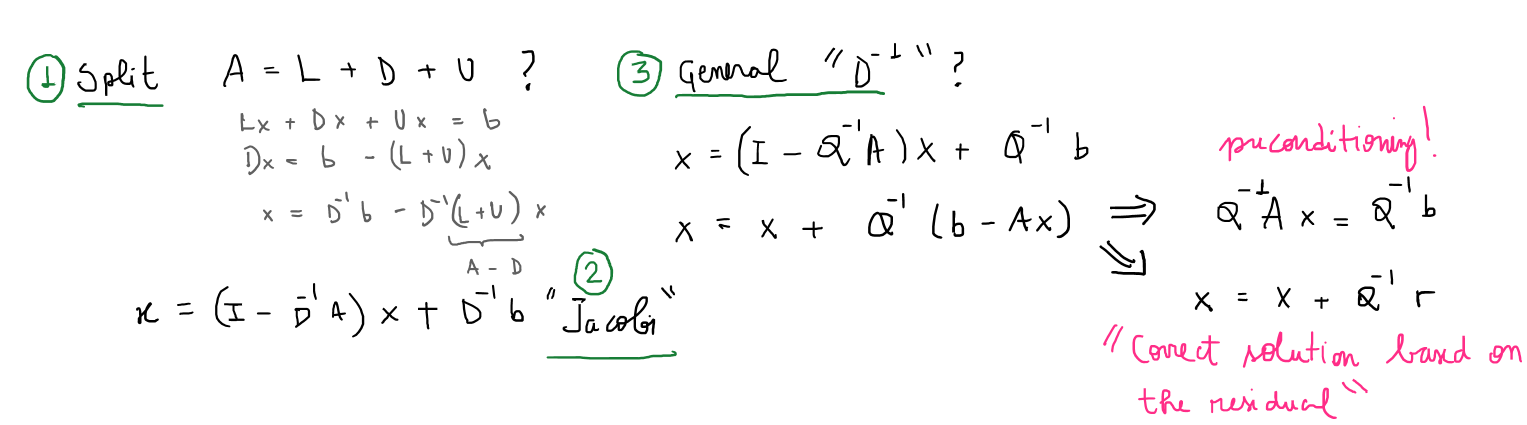 ① Split A = L + D + U ?
Lx + Dx + Ux = b
Dx = b - (L+U) x
x = D⁻¹ b - D⁻¹(L+U) x
A - D
②
x = (I - D⁻¹A) x + D⁻¹ b "Jacobi"
③ General "D⁻¹" ?
x = (I - Q⁻¹A) x + Q⁻¹ b
x = x + Q⁻¹ (b - Ax) ⇒
⇘
preconditioning!
Q⁻¹A x = Q⁻¹ b
x = x + Q⁻¹ r
"Correct solution based on
the residual"